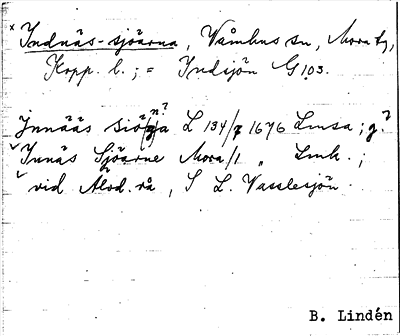 x Indnäs-sjöarna, Våmhus sn, Mora tg,
Kopp. l.; = Indsjön G 103.
Innääs Siöga n? L 134/7 1676 Lmsa; g.?
✓ Innäs Sjöarne Mora/1 " Lmk.;
✓ vid Älvd. rå, S L. Vasslesjön.
B. Lindén